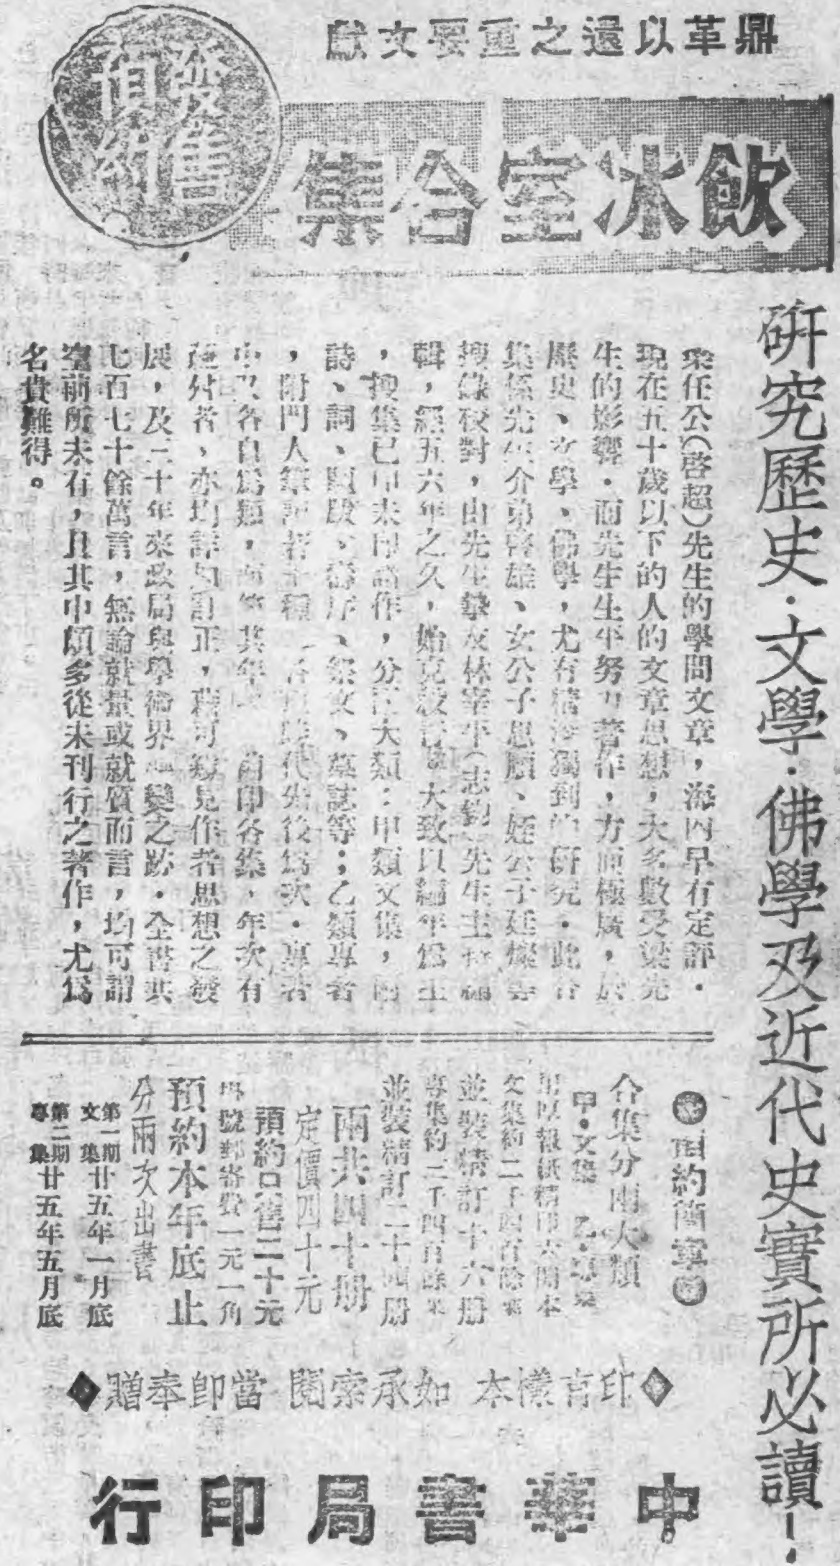 鼎革以還之重要文獻
飲冰室合集
發售
預約
研究歷史·文學·佛學及近代史實所必讀—
梁任公(啓超)先生的學問文章，海內早有定評·
現在五十歲以下的人的文章思想，大多數受梁先
生的影響·而先生生平努力著作，方面極廣，於
歷史、文學、佛學，尤有精湛獨到的研究·此合
集係先生介弟啓雄、女公子思順、姪公子廷燦等
搜錄校對，由先生摯友林宰平(志鈞)先生主持編
輯，經五六年之久，始克殺青·大致以編年爲主
，搜集已印未印諸作，分兩大類：甲類文集，附
詩、詞、題跋、壽序、祭文、墓誌等；乙類專著
，附門人筆記若干種·各有時代先後爲次·專著
中又各自爲類，而第其年 前印各集，年次有
亦均詳加訂正，藉可窺見作者思想之發
展，及三十年來政局與學術界 變之跡·全書共
七百七十餘萬言，無論就量或就質而言，均可謂
空前所未有，且其中頗多從未刊行之著作，尤爲
名貴難得。
預約簡章
合集分兩大類
甲·文集 乙·專集
報紙精印大開本
文集約二千四百餘頁
並裝精訂十六册
專集約三千四百餘頁
並裝精訂二十四册
兩共四十册
定價四十元
預約只售二十元
掛號郵寄費一元一角
預約本年底止
分兩次出書
第一期文集廿五年一月底
第二期專集廿五年五月底
◆印有樣本 如承索閱 當即奉贈◆
中華書局印行